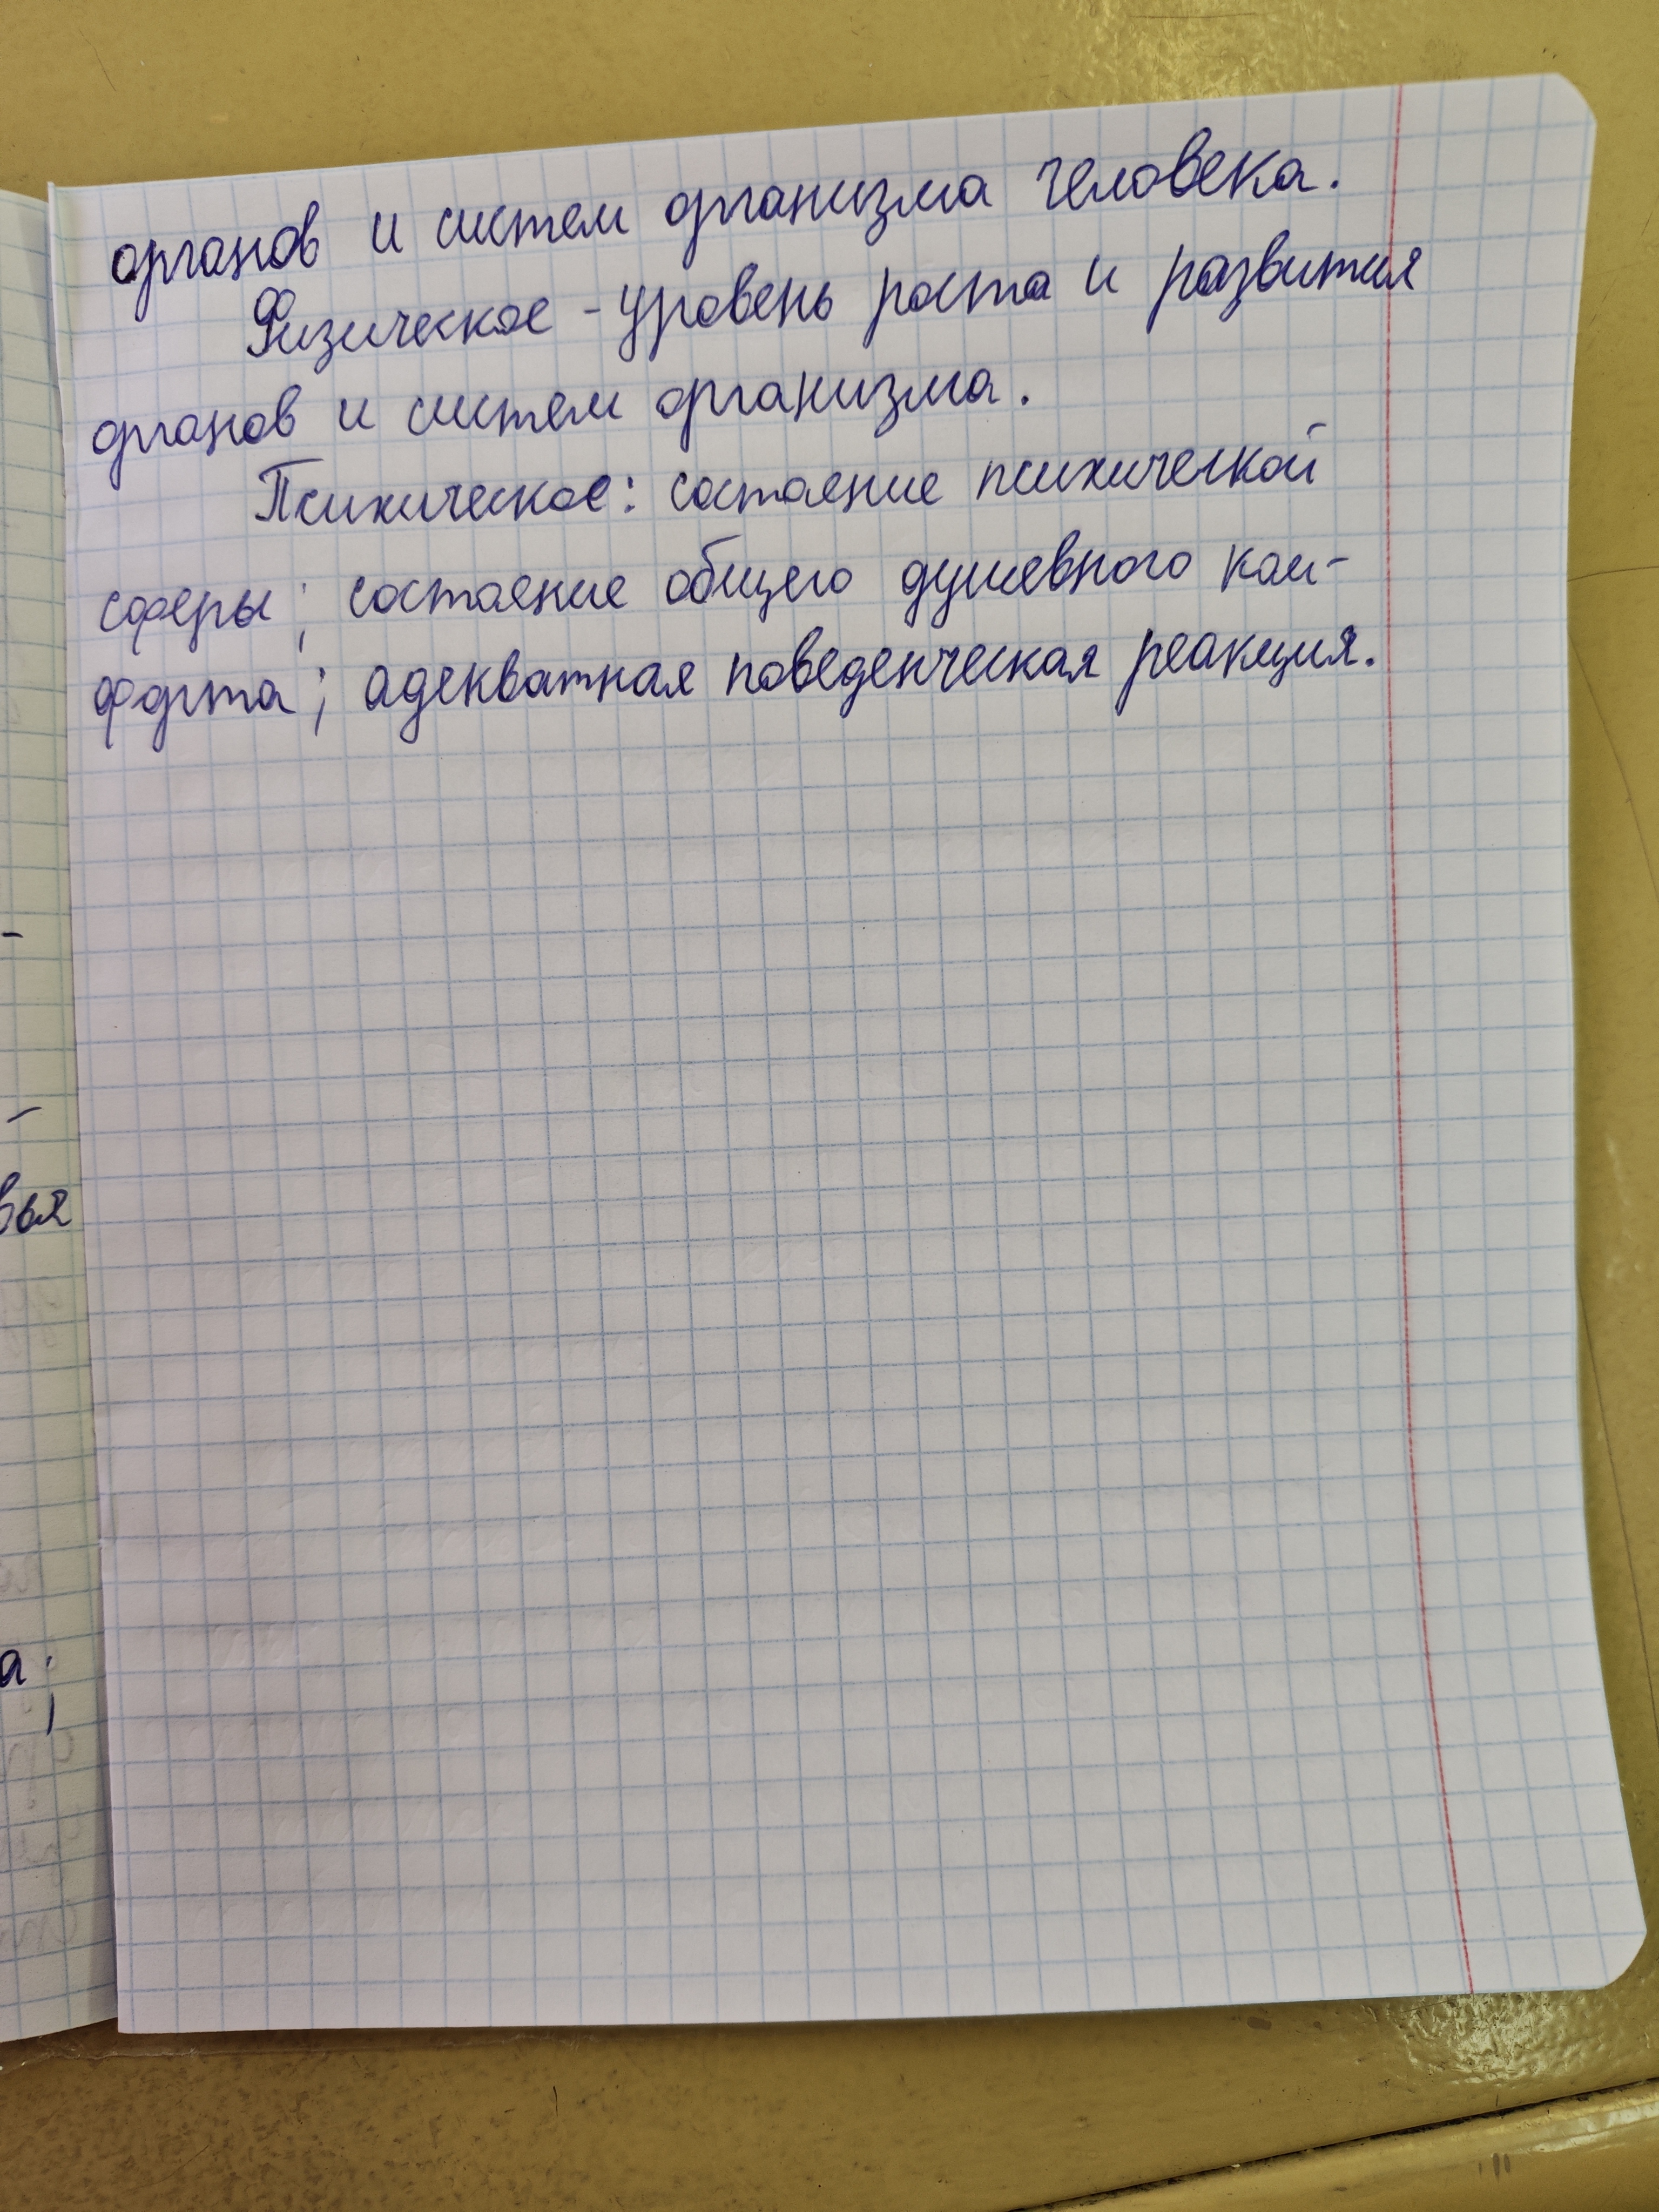 органов и систем организма человека.
Физическое - уровень роста и развития
органов и систем организма.
Психическое: состояние психической
сферы; состояние общего душевного ком-
форта; адекватная поведенческая реакция.
-
-
вья
а;